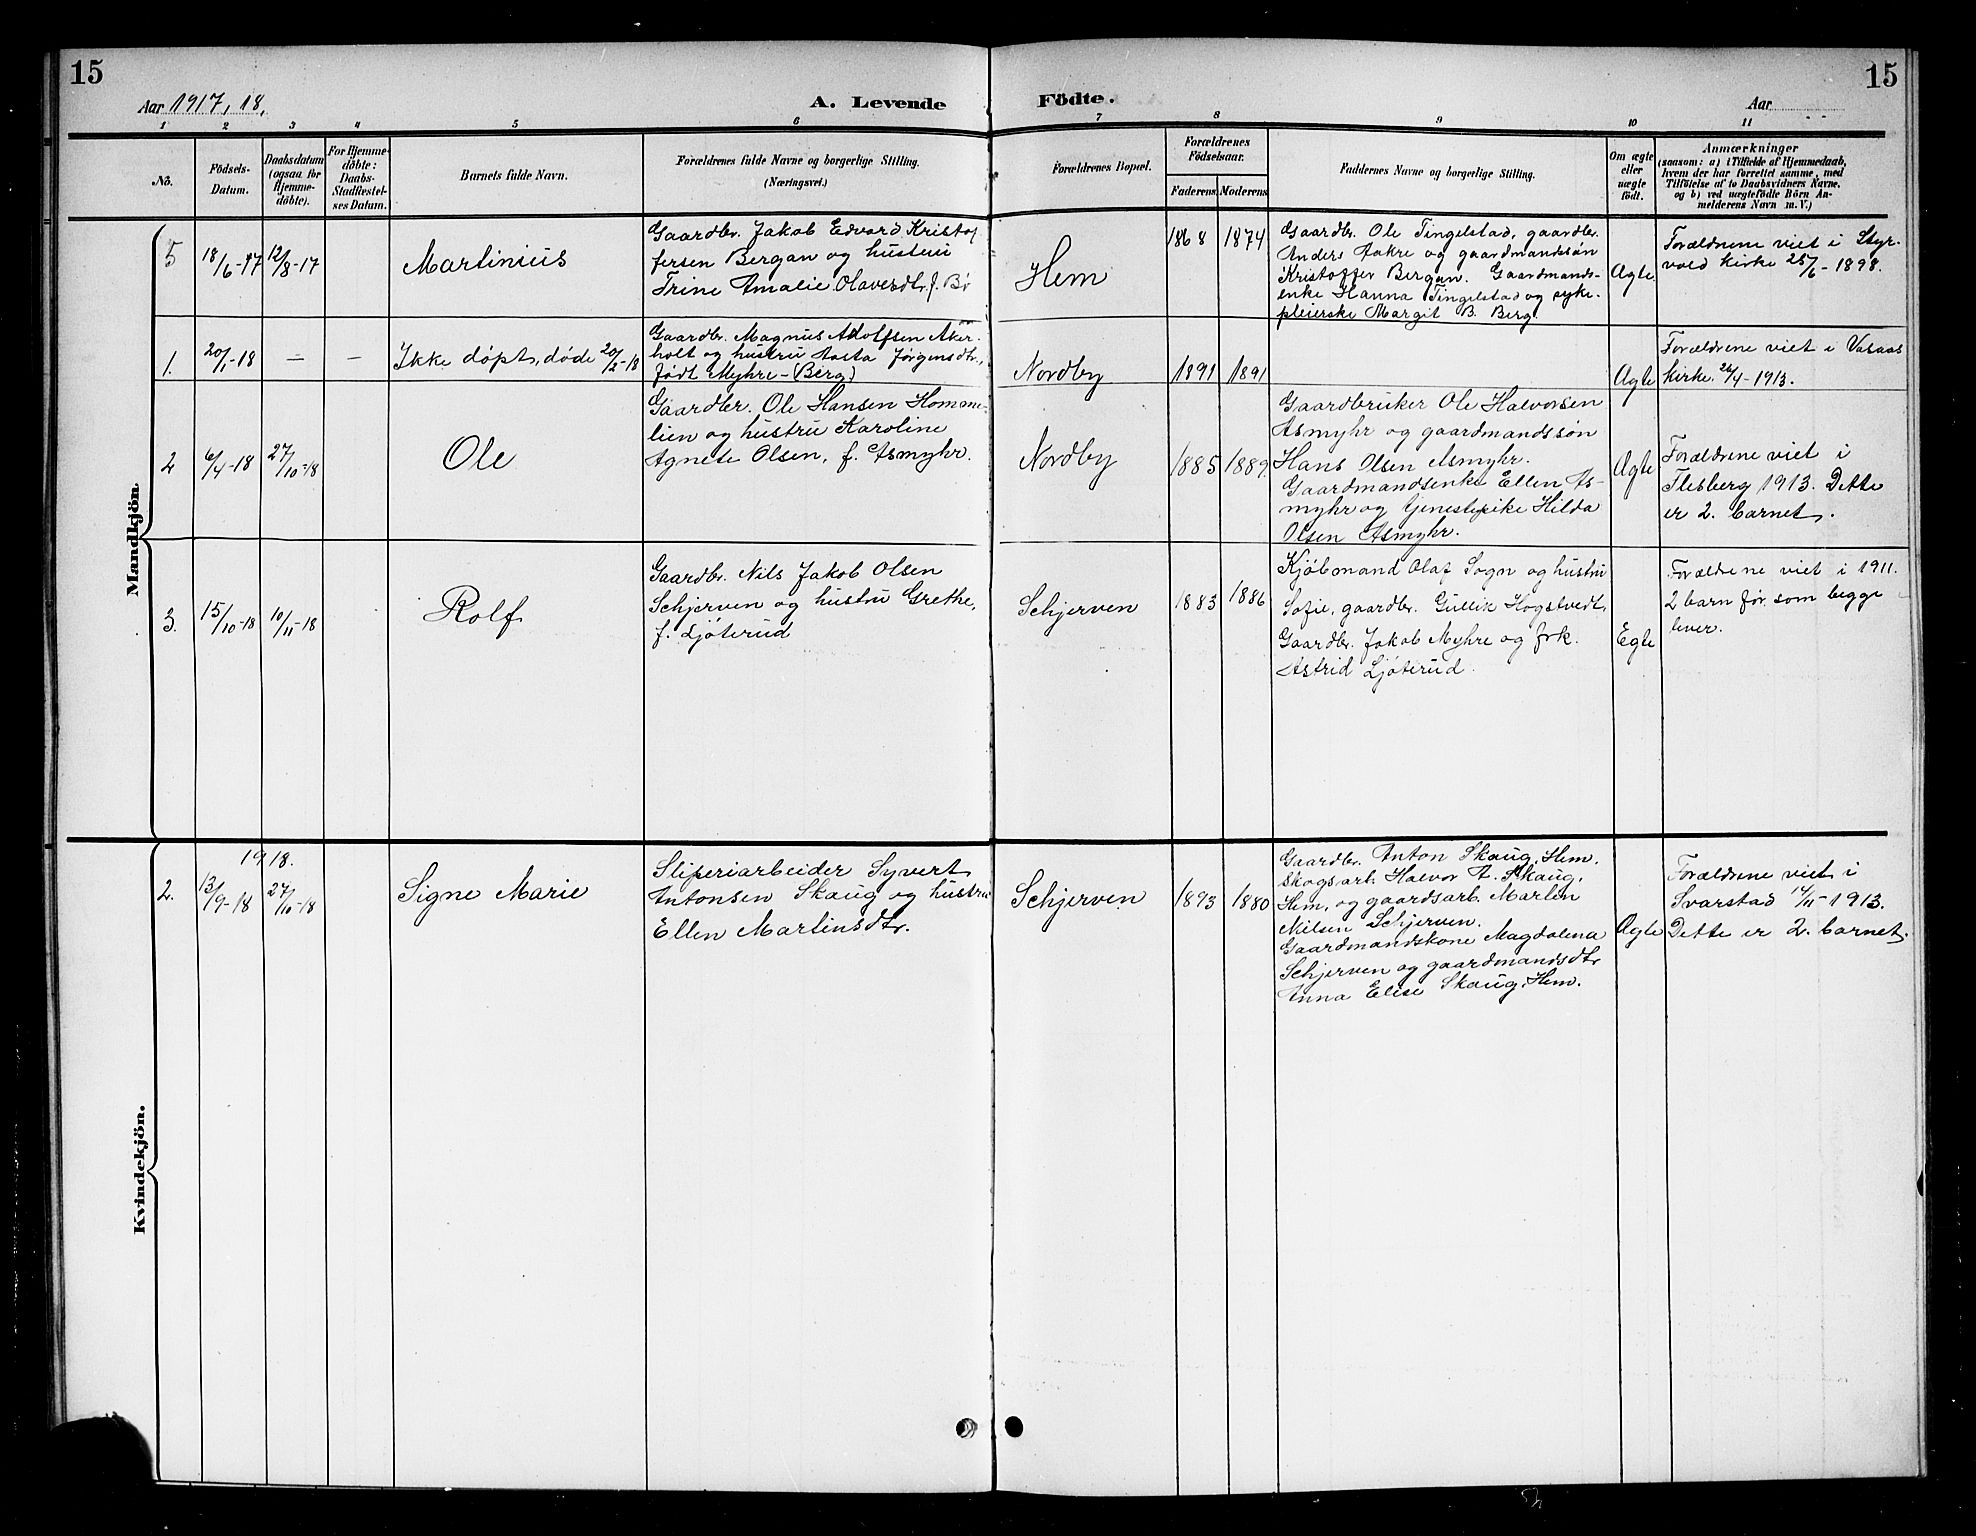 15
15
Aar 1917, 18,
A. Levende Födte.
Aar
1 2 3 4 5 6 7 8 9 10 11
No.
Födsels-Datum.
Daabsdatum (ogsaa for Hjemme-döbte).
For Hjemme-döbte: Daabs-Stadfæstel-ses Datum.
Barnets fulde Navn.
Forældrenes fulde Navne og borgerlige Stilling.
(Næringsvei.)
Forældrenes Bopæl.
Forældrenes Födselsaar.
Faderens. Moderens.
Faddernes Navne og borgerlige Stilling.
Om ægte eller uægte födt.
Anmærkninger
(saasom: a) i Tilfælde af Hjemmedaab,
hvem der har forrettet samme, med
Tilföielse af to Daabsvidners Navne,
og b) ved uægtefödte Börn An-
melderens Navn m. V.)
Mandkjön.
5
18/6-17
12/8-17
Martinius
Gaardbr. Jakob Edvard Kristof
fersen Bergan og hustru
Trine Amalie Olavesdtr. f. Bø
Hem
1868
1874
Gaardbr. Ole Tingelstad, gaardbr.
Anders Aakre og gaardmandsøn
Kristoffer Bergan. Gaardmands-
enke Hanna Tingelstad og syke-
pleierske Margit B. Berg.
Ægte.
Forældrene viet i Styr-
vold kirke 25/6-1898.
1.
20/1-18
—
—
Ikke døpt, døde 20/2-18
Gaardbr. Magnus Adolfsen Aker-
holt og hustru Aasta Jørgensdtr.,
født Myhre-(Berg)
Nordby
1891
1891
Ægte
Forældrene viet i Vasaas
kirke 26/4-1913.
2
6/4-18
27/10-18
Ole
Gaardbr. Ole Hansen Homme-
lien og hustru Karoline
Agnete Olsen, f. Asmyhr.
Nordby
1885
1889.
Gaardbruker Ole Halvorsen
Asmyhr og gaardmandssøn
Hans Olsen Asmyhr.
Gaardmandsenke Ellen As-
myhr og tjenestepike Hilda
Olsen Asmyhr.
Ægte
Forældrene viet i
Flesberg 1913. Dette
er 2. barnet.
3.
15/10-18
10/11-18
Rolf
Gaardbr. Nils Jakob Olsen
Schjerven og hustru Grethe,
f. Ljøterud
Schjerven
1883
1886
Kjøbmand Olaf Sogn og hustru
Sofie, gaardbr. Gullik Hogstvedt,
Gaardbr. Jakob Myhre og frk.
Astrid Ljøterud.
Egte
Forældrene viet i 1911.
2 barn før, som begge
lever.
Kvindekjön.
1918.
2.
13/9-18
27/10-18
Signe Marie
Sliperiarbeider Syvert
Antonsen Skaug og hustru
Ellen Martinsdtr.
Schjerven
1893
1880
Gaardbr. Anton Skaug, Hem.
Skogsarb. Halvor A. Skaug,
Hem, og gaardsarb. Martin
Nilsen Schjerven.
Gaardmandskone Magdalena
Schjerven og gaardmandsdtr
Anna Elise Skaug, Hem.
Ægte
Forældrene viet i
Svarstad 14/11-1913.
Dette er 2. barnet.